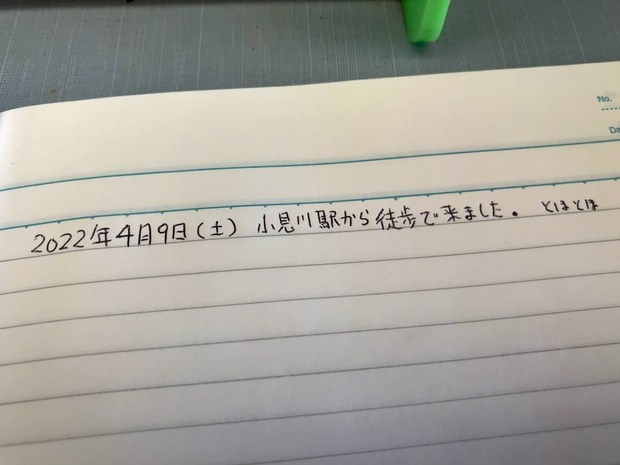 No.
Da
2022年4月9日(土) 小見川駅から徒歩で来ました。 とほとほ